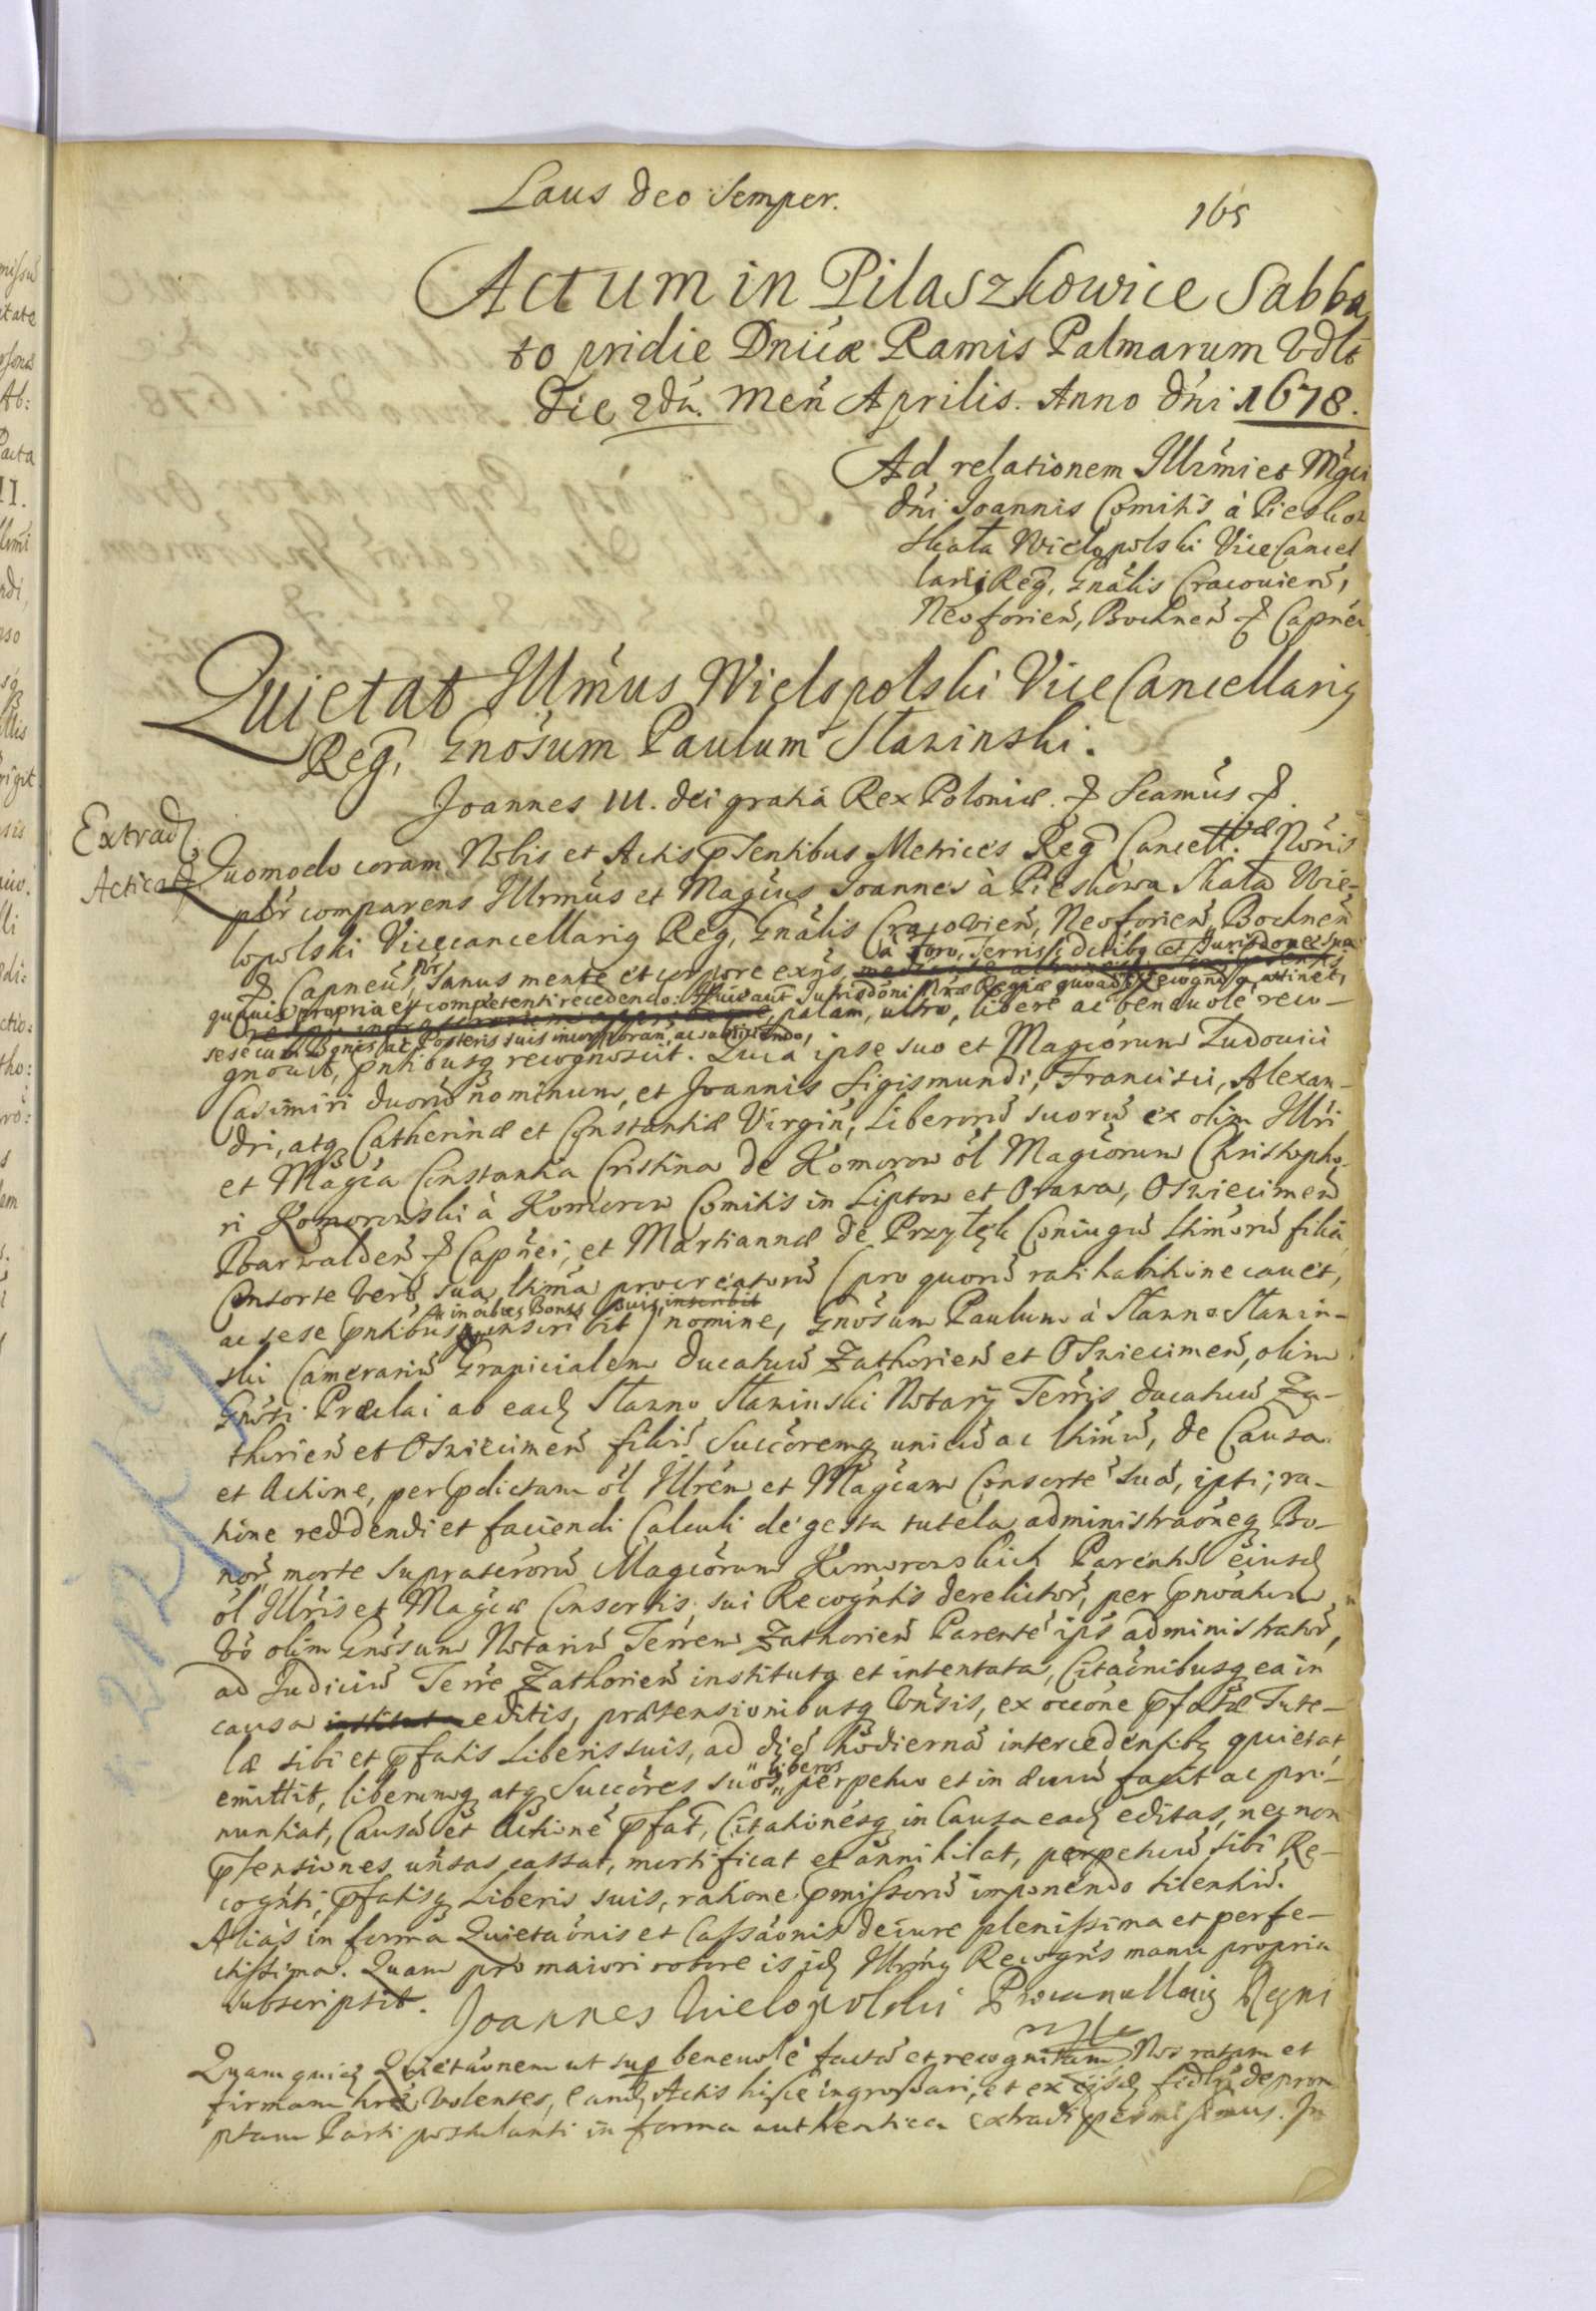 Laus Deo Semper.
165
Actum in Pilaszkowice Sabba
to pridie Dnicæ Ramis Palmarum vdlt
Die 2da. Men Aprilis. Anno Dni 1678.
Ad relationem Illrmi et Mgci
Dni Joannis Comitis à Pieskow
Skała Wielopolski Vice Cancel
larii Reg, Gnalis Cracovien,
Neoforien, Bochnen & Capnei
Quietat Illmus Wielopolski Vice Cancellarig
Reg, Gnosum Paulum Stawinski.
Joannes III. Dei gratia Rex Poloniæ. & Seamus &.
Extrad
Acticat
Quomodo coram Nobis et Actis pntibus Metrices Reg Cancell. Noris
plr comparens Illrmus et Magcus Joannes à Pieskowa Skała Wie-
lopolski Vicecancellarig Reg, Gnalis Cracovien, Neoforien, Bochnen
à Foro, Terris, et Jurisdone sua
& Capneus, sanus mente et corpore exns,
quavis propria et competenti recedendo: Huic aut Jurisdoni Nræ Regiæ quoad recognos attinet,
palam, ultro, libere ac benevole reco-
sese cum Bonis ac Posteris suis incorporan ac subijciendo,
gnovit, pntibusq recognoscit. Quia ipse suo et Magcorum Ludovici
Casimiri duoru nominum, et Joannis Sigismundi, Francisci, Alexan-
dri, atq Catherinæ et Constantiæ Virgin, Liberoru suoru ex olim Illri
et Magca Constantia Cristina de Komorow ol Magcorum Christopho-
ri Komorowski à Komorow Comitis in Liptow et Orawa, Oswiecimen
Barwalden & Capnei, et Martiannæ de Przyłęk Coniugu ltimoru filia,
Consorte vero sua ltima procreatoru (pro quoru ratihabitione cavet,
in oibus Bonis suis
ac sese pntibus inscribit) nomine, Gnosum Paulum à Stawno Stawin-
ski Camerariu Granicialem Ducatuu Zathorien et Oswiecimen, olim
Gnosi Præclai ab ead Stawno Stawinski Notary Terris Ducatuu Za-
thorien et Oswiecimen filiu Succoremq unicu ac ltimu, de Causa
et Actione, per pdictam ol Illrem et Magcam Consorte sua, ipsi; ra-
tione reddendi et faciendi Calculi de gesta tutela administraoneq Bo-
nor morte supraseroru Magcorum Komorowskich Parentu eiusd
ol Illris et Magcæ Consortis, sui Recogntis derelictor, per pnoatum
vo olim Gnosum Notariu Terrem Zathorien Parente ips administrator,
ad Judiciu Terre Zathorien instituta et intentata, Citaonibusq ea in
causa editis, prætensionibusq vnsis, ex occone pfatæ Tute-
læ sibi et pfatis Liberis suis, ad die hodierna intercedentibq quietat,
liberos
emittit, liberumq atq Succores suos perpetuo et in ævuu facit ac pro-
nuntiat, Causa et Actione pfat, Citationesq in Causa ead editas, nec non
ptensiones, unsas cassat, mortificat et annihilat, perpetuu sibi Re-
cognti, pfatisq Liberis suis, ratione pmissoru imponendo silentiu.
Alias in forma Quietaonis et Cassaonis de iure plenissima et perfe-
ctissima. Quam pro maiori robore is id Illrmq Recogns manu propria
subscripsit. Joannes Wielopolski Procancellarig Regni
Quam quid Quietaonem ut sup benevole facta et recognitam Nos ratam et
firmam hre volentes, eand Actis hisce ingrossari, et ex ijsd fidlr depron
ptam Parti postulanti in forma authentica extradi permisimus. In